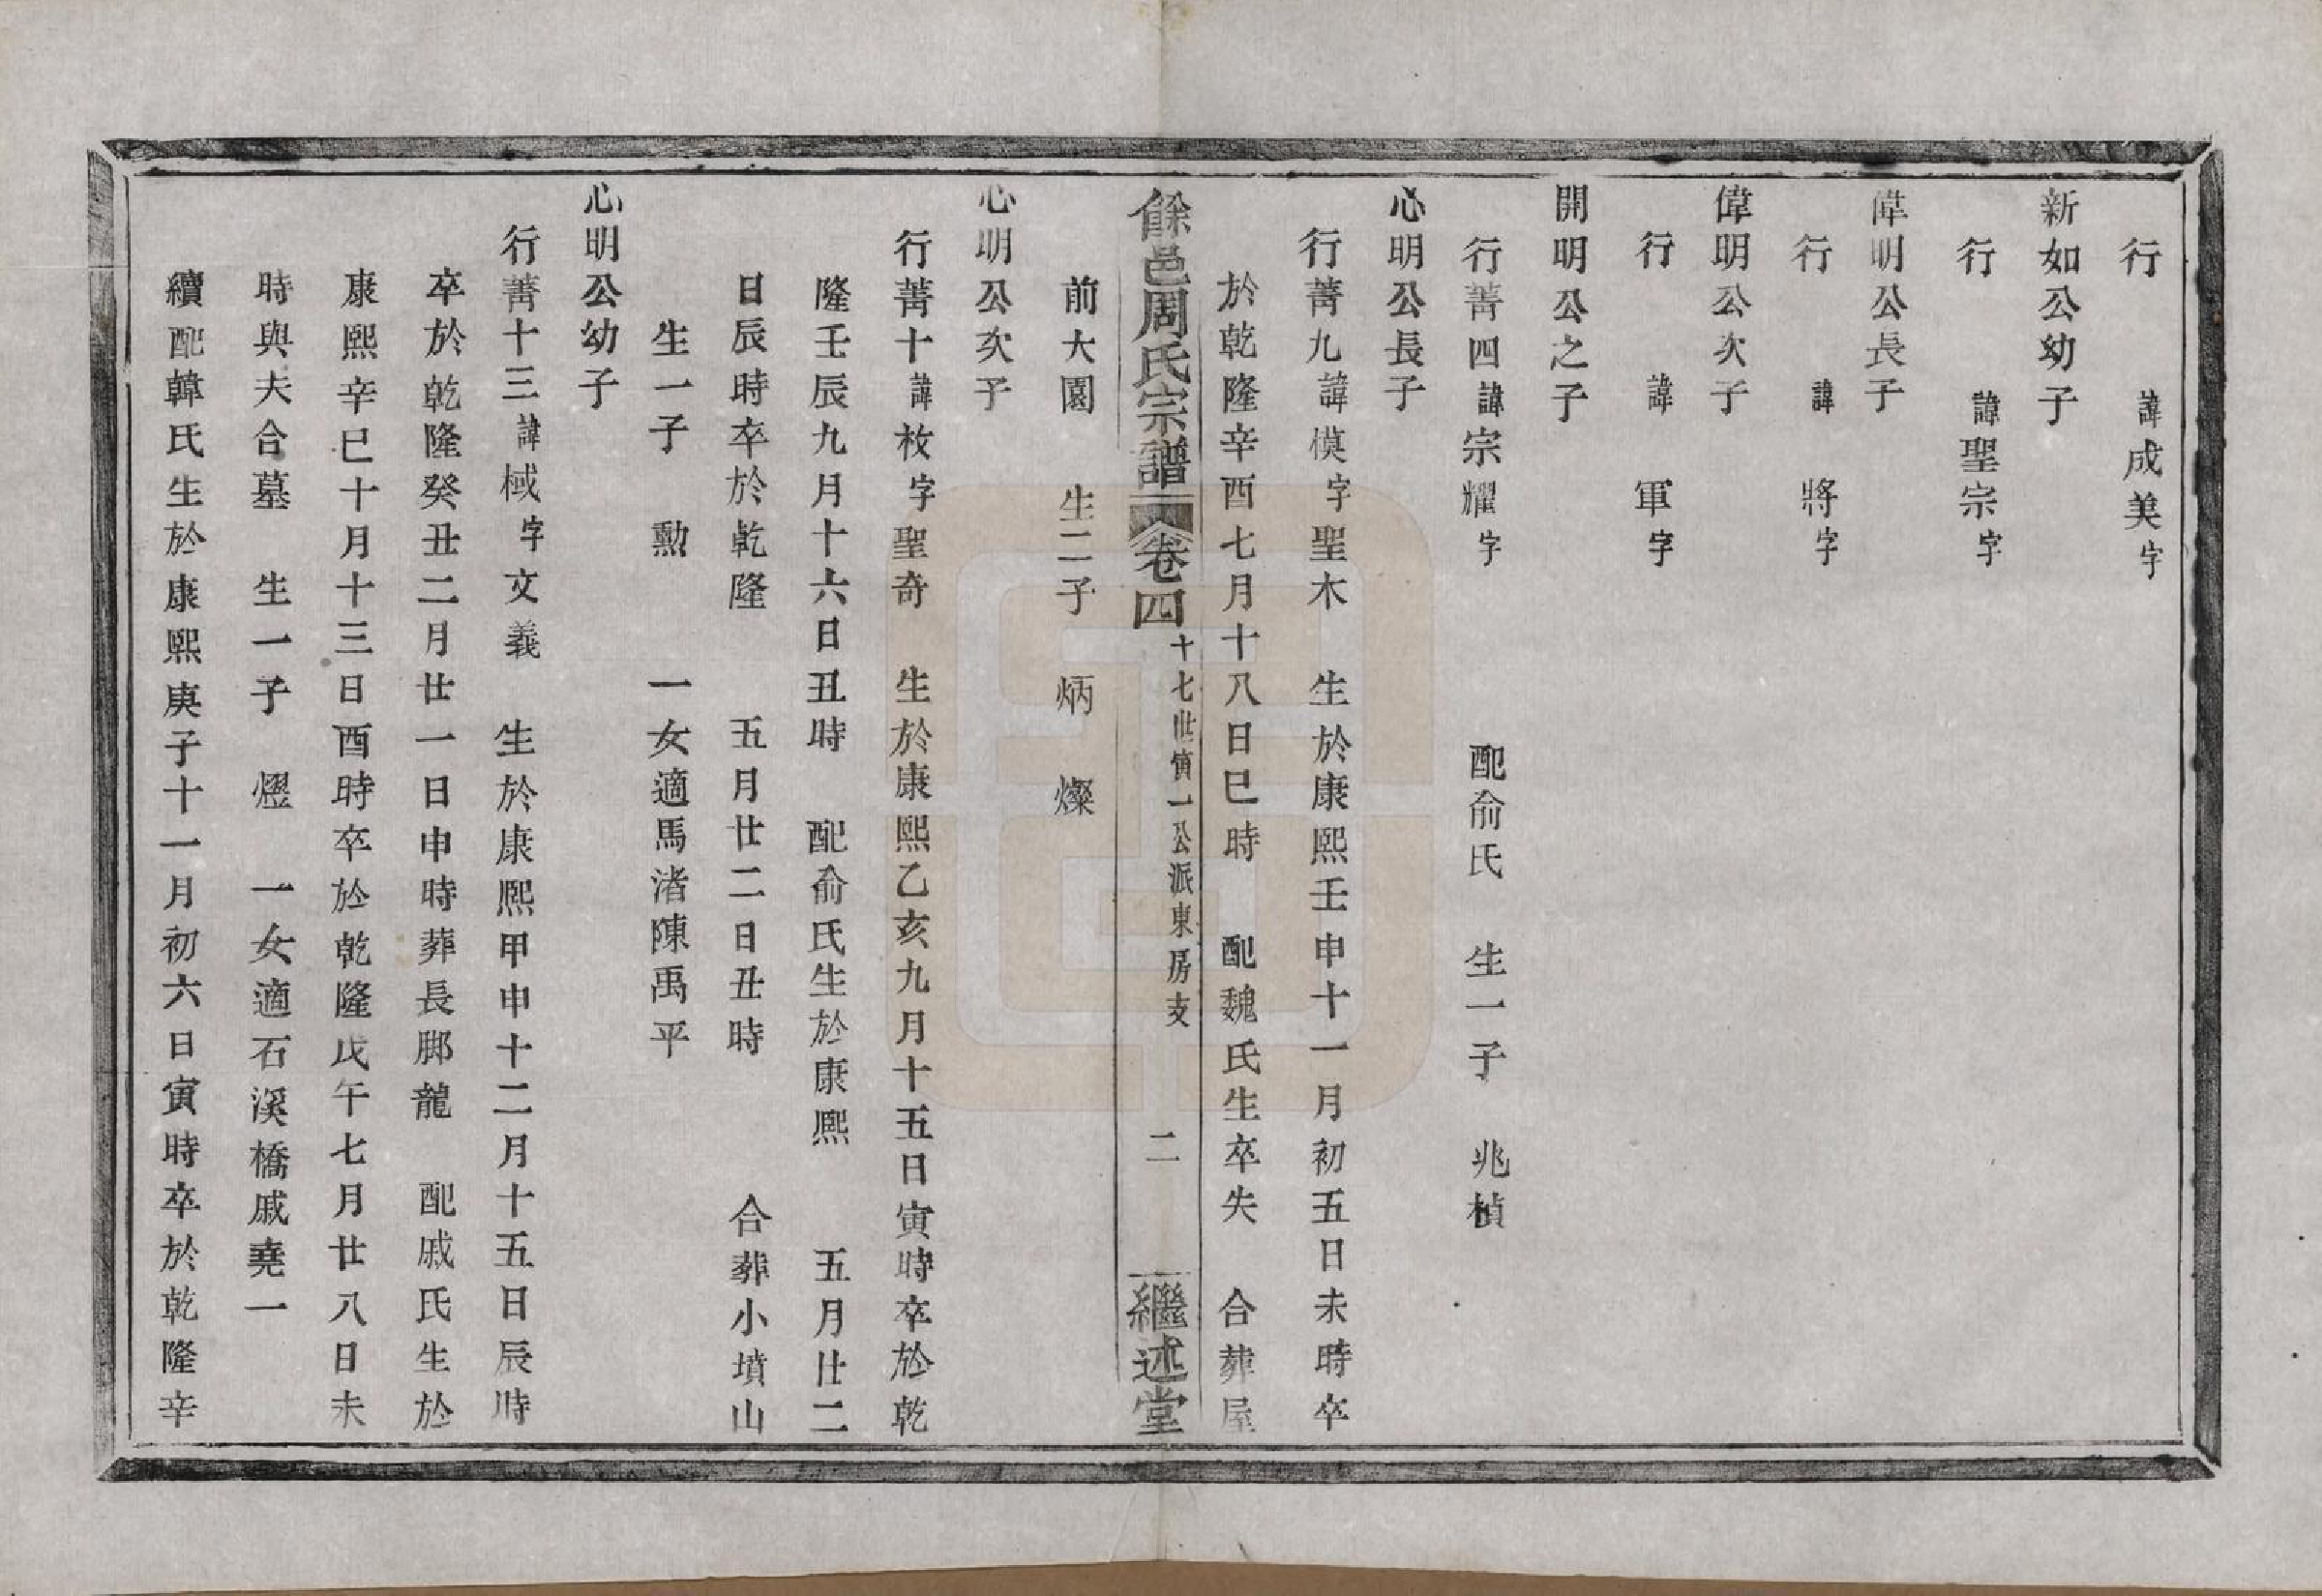 行 諱成美字
新如公幼子
行 諱聖宗字
偉明公長子
行 諱 將字
偉明公次子
行 諱 軍字
開明公之子
行菁四諱宗耀字 配俞氏 生一子 兆楨
心明公長子
行菁九諱模字聖木 生於康熙壬申十一月初五日未時卒
於乾隆辛酉七月十八日巳時 配魏氏生卒失 合葬屋
前大園 生二子 炳 燦
心明公次子
行菁十諱枚字聖奇 生於康熙乙亥九月十五日寅時卒於乾
隆壬辰九月十六日丑時 配俞氏生於康熙 五月廿二
日辰時卒於乾隆 五月廿二日丑時 合葬小墳山
生一子 勲 一女適馬渚陳禹平
心明公幼子
行菁十三諱棫字文義 生於康熙甲申十二月十五日辰時
卒於乾隆癸丑二月廿一日申時葬長脚龍 配戚氏生於
康熙辛巳十月十三日酉時卒於乾隆戊午七月廿八日未
時與夫合墓 生一子 熤 一女適石溪橋戚堯一
續配韓氏生於康熙庚子十一月初六日寅時卒於乾隆辛
餘邑周氏宗譜 卷四 十七世寅一公派東房支 二 繼述堂